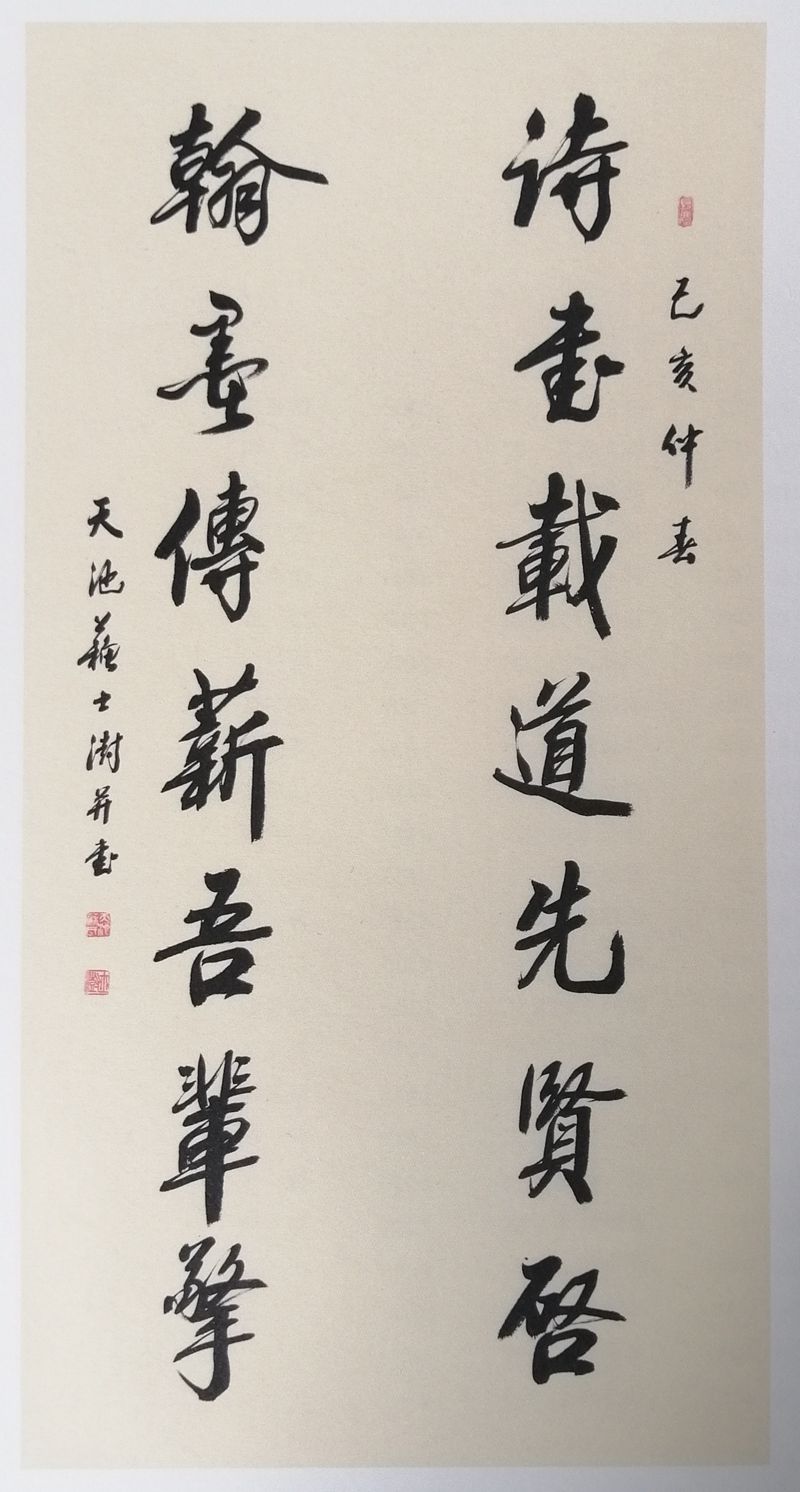 己亥仲春
詩書載道先賢啓
翰墨傳薪吾輩擎
天池蘇士澍并書